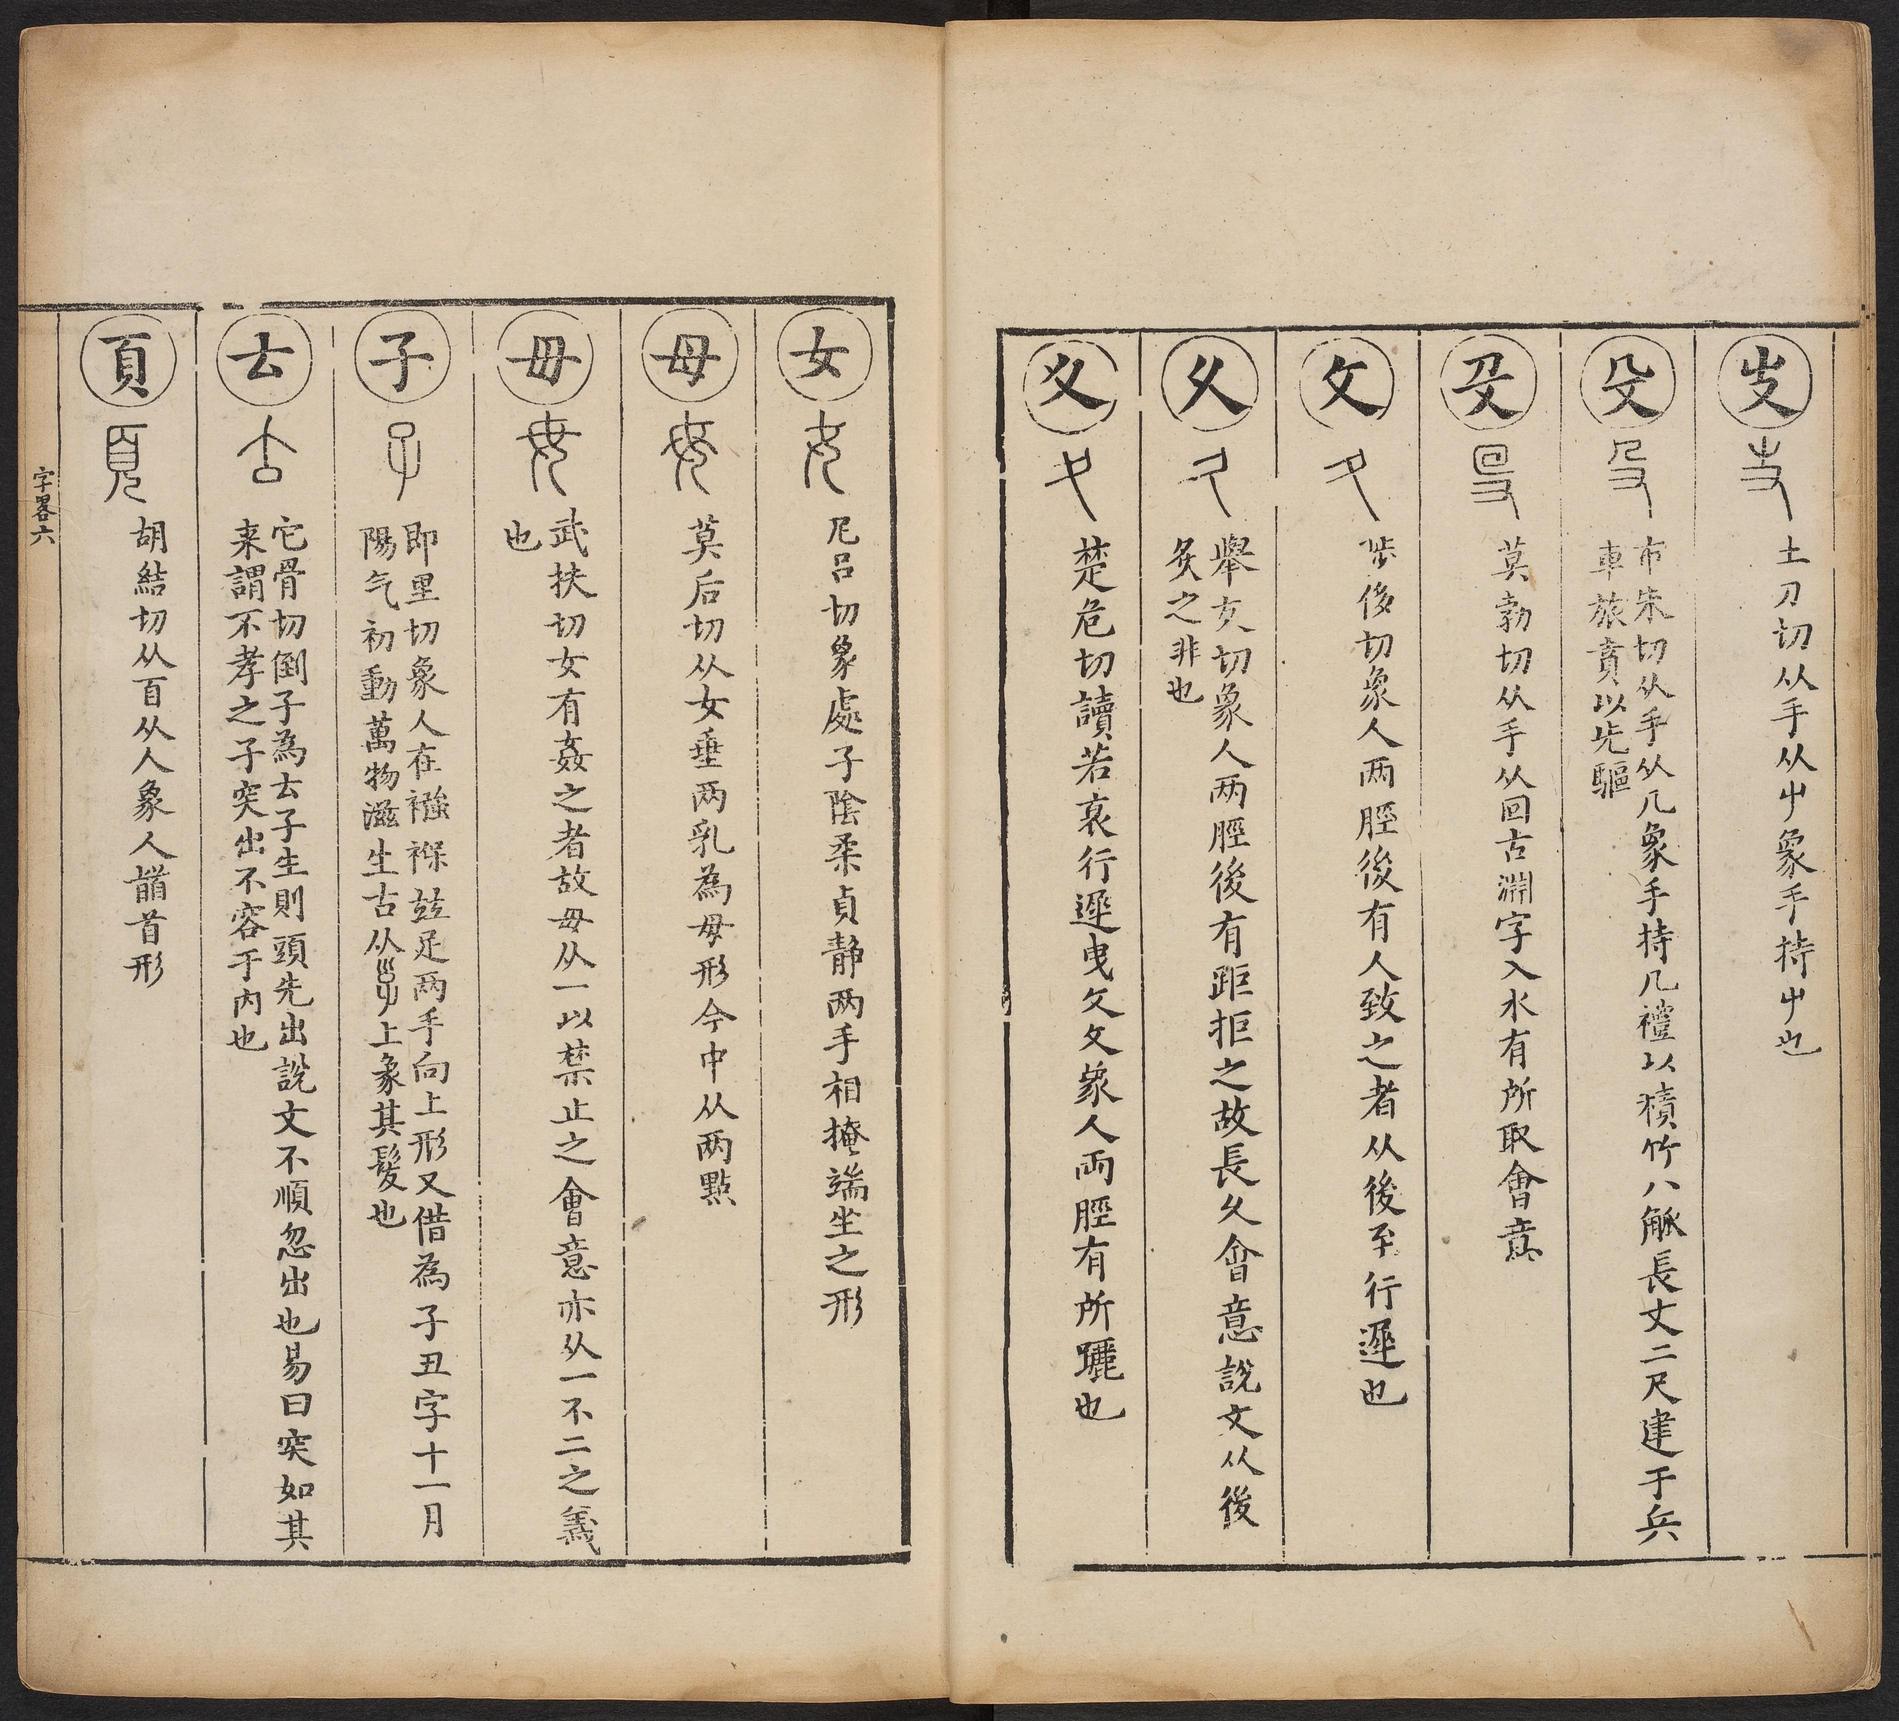 土刀切从手从屮象手持屮也
殳
市朱切从手从几象手持几禮以積竹八觚長丈二尺建于兵
車旅賁以先驅
𠬛
莫勃切从手从回古淵字入水有所取會意
夂
陟侈切象人两脛後有人致之者从後至行遲也
久
舉友切象人两脛後有距拒之故長久會意說文从後
灸之非也
夊
楚危切讀若衰行遲曳夂夊象人両脛有所躧也
女
尼呂切象處子陰柔貞静两手相掩端坐之形
母
莫后切从女垂两乳為母形今中从两點
毋
武扶切女有姦之者故毋从一以禁止之會意亦从一不二之義
也
子
即里切象人在襁褓竝足两手向上形又借為子丑字十一月
陽气初動萬物滋生古从㜽上象其髪也
𠫓
它骨切倒子為𠫓子生則頭先出說文不順忽出也易曰突如其
来謂不孝之子突出不容于内也
頁
胡結切从𦣻从人象人𩠐首形
字畧六